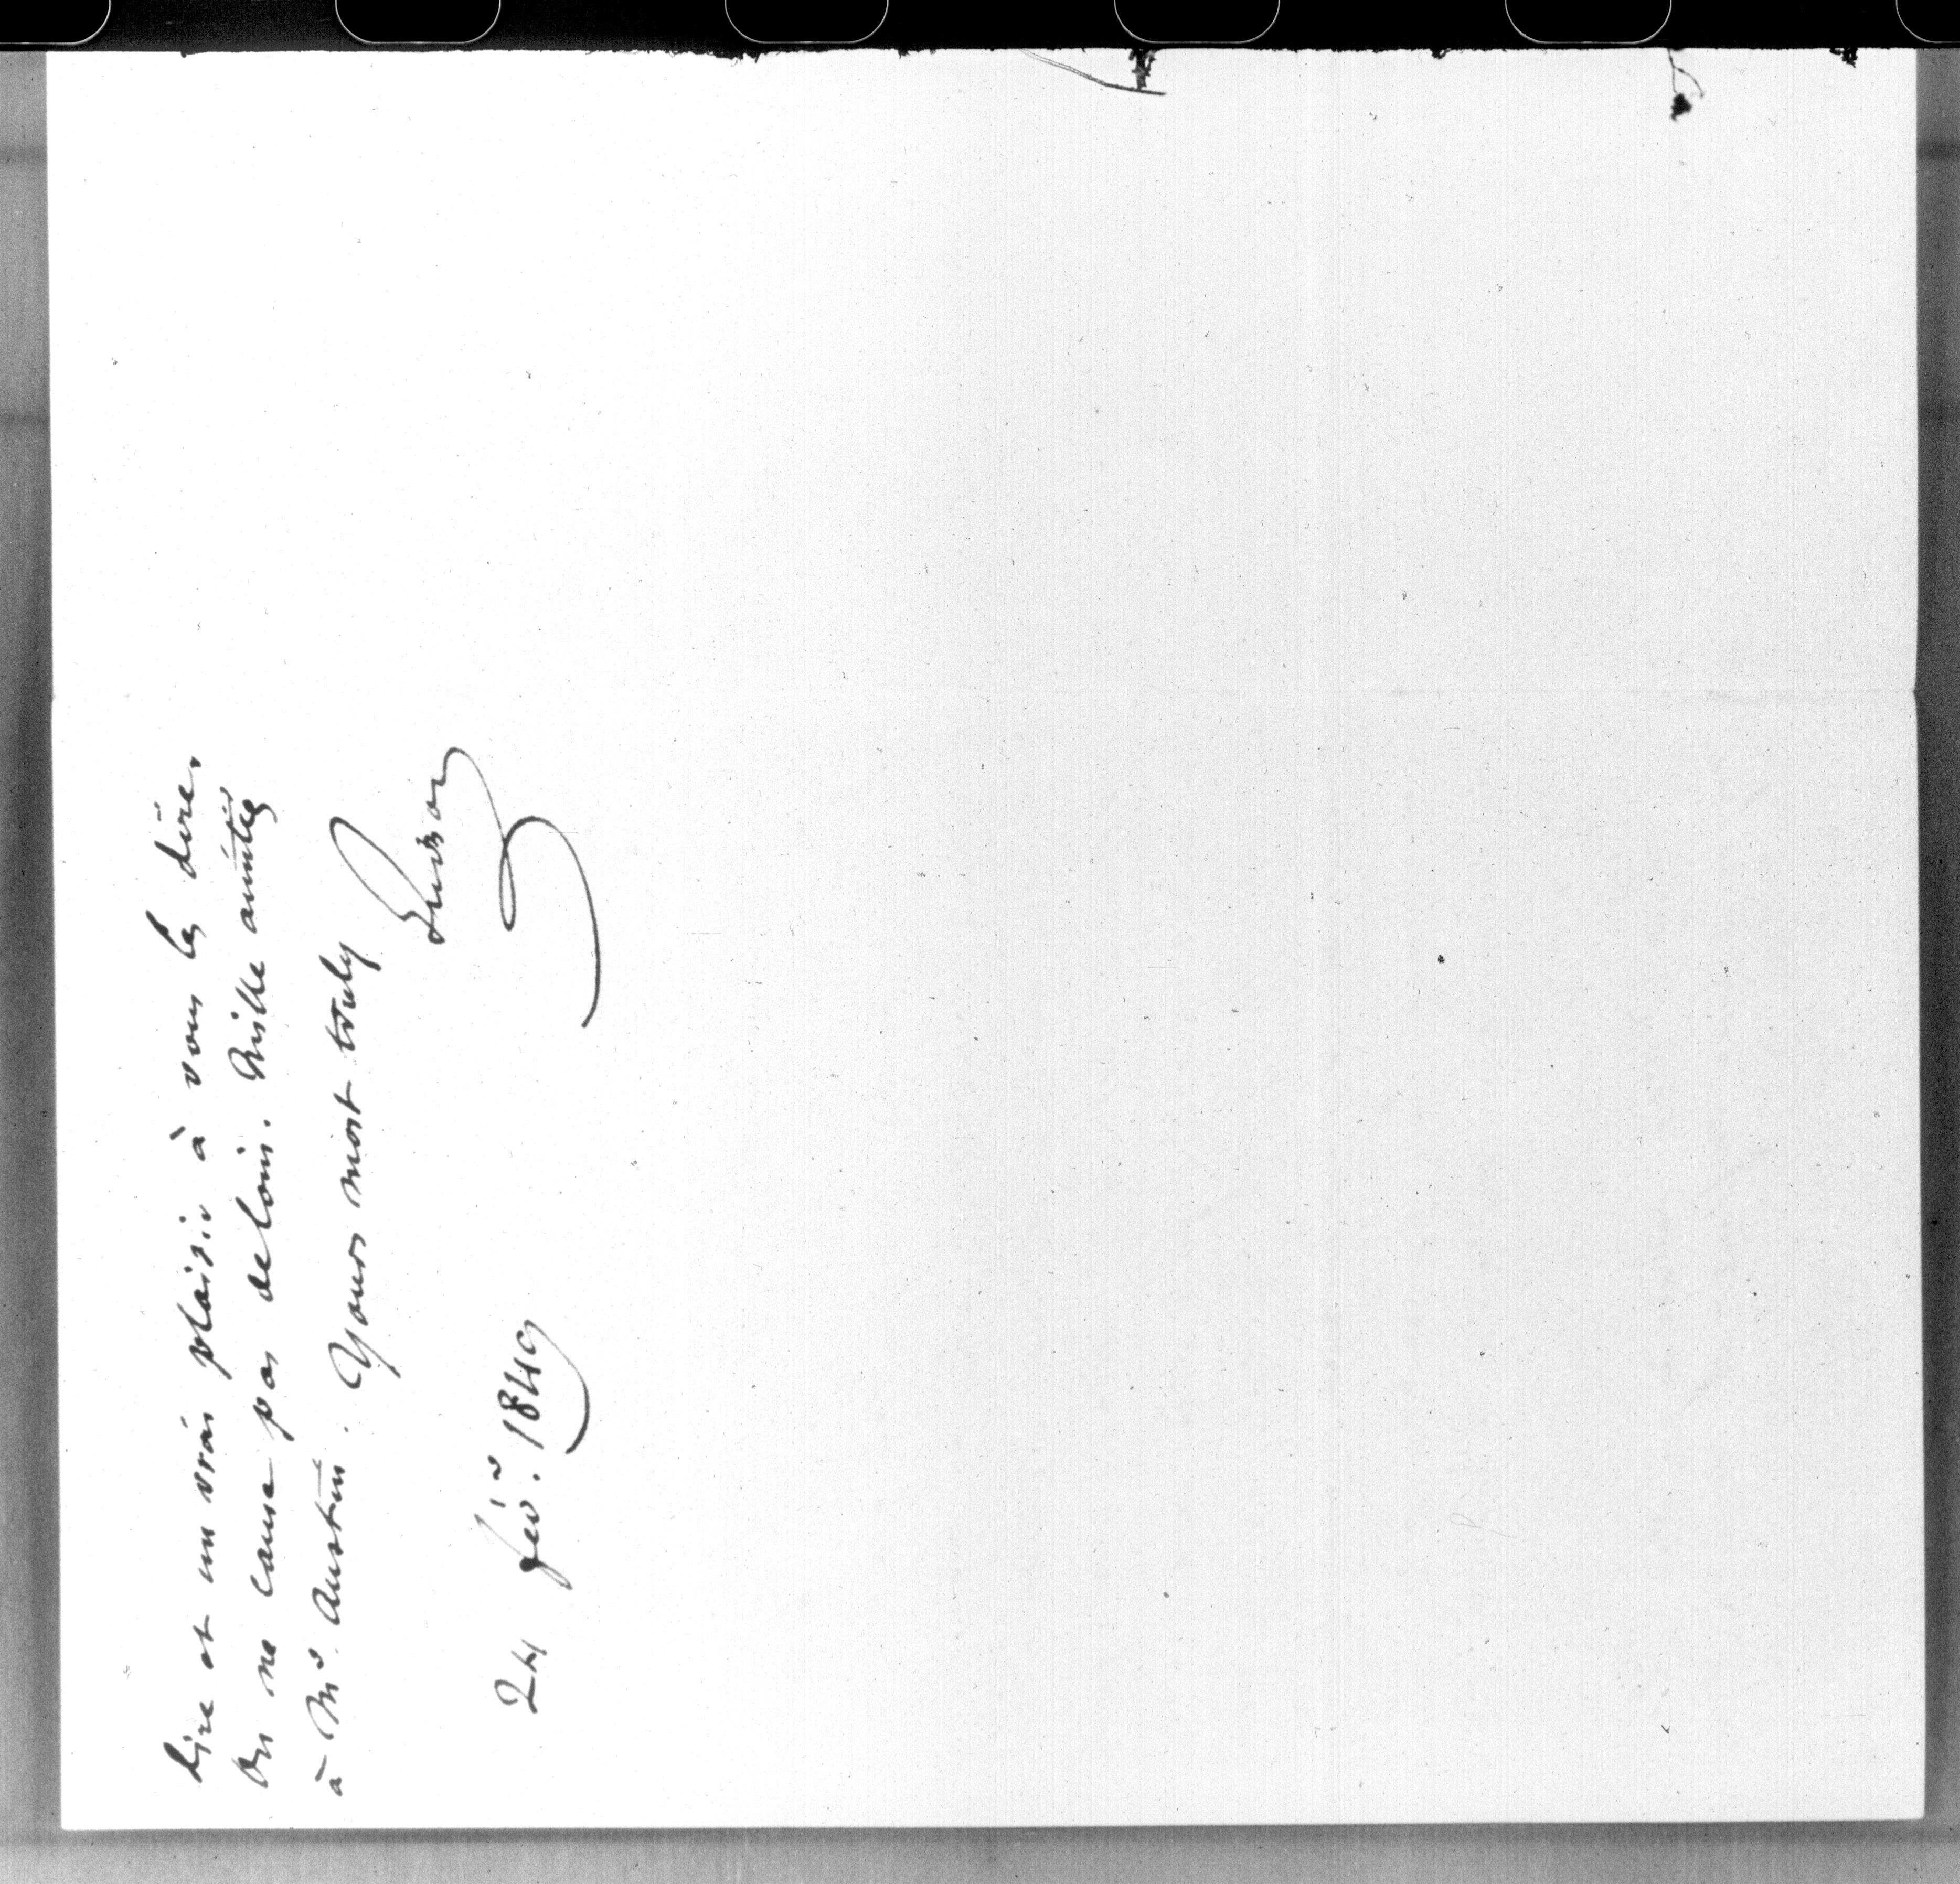 dire et un vrai plaisir à vous les dire.
On ne cause pas de loin. Mille amitiés
à Mr. Austin. Yours most truly
Guizot
24 févr. 1849